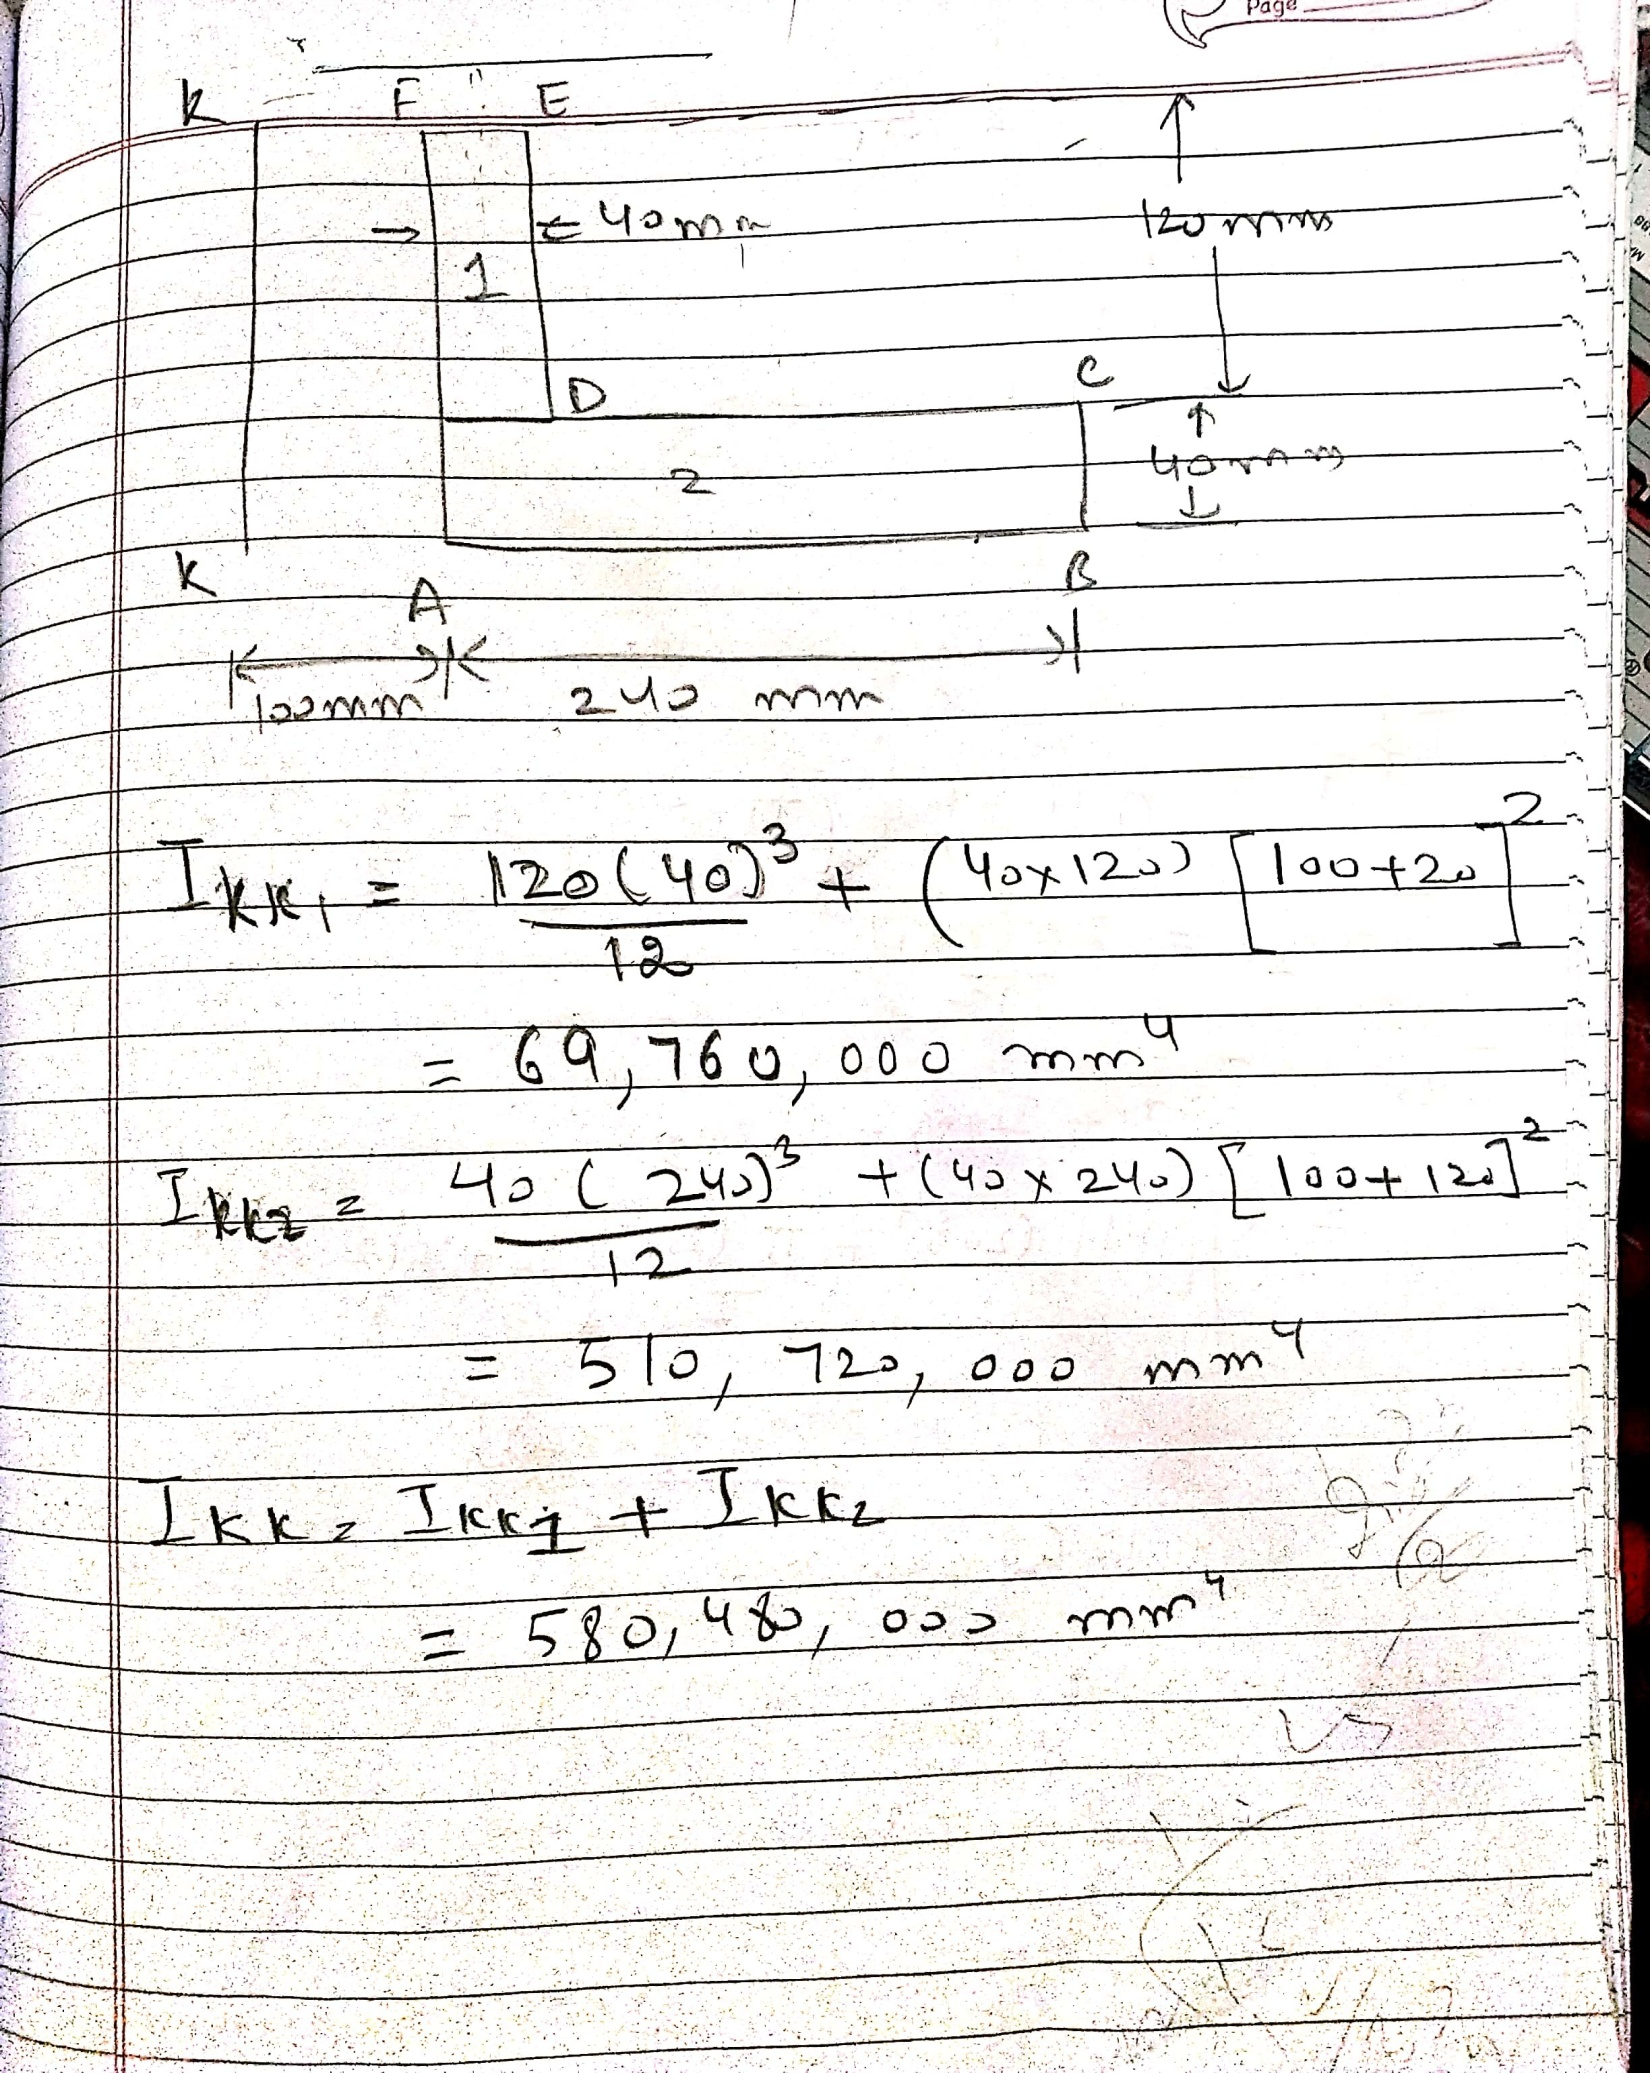 Page
K F E
40mm
120 mm
1
D C
40mm
2
K A B
100mm 240 mm
IKK1 = 120(40)³/12 + (40×120) [100+20]²
= 69,760,000 mm⁴
IKK2 = 40(240)³/12 + (40×240) [100+120]²
= 510,720,000 mm⁴
IKK = IKK1 + IKK2
= 580,480,000 mm⁴